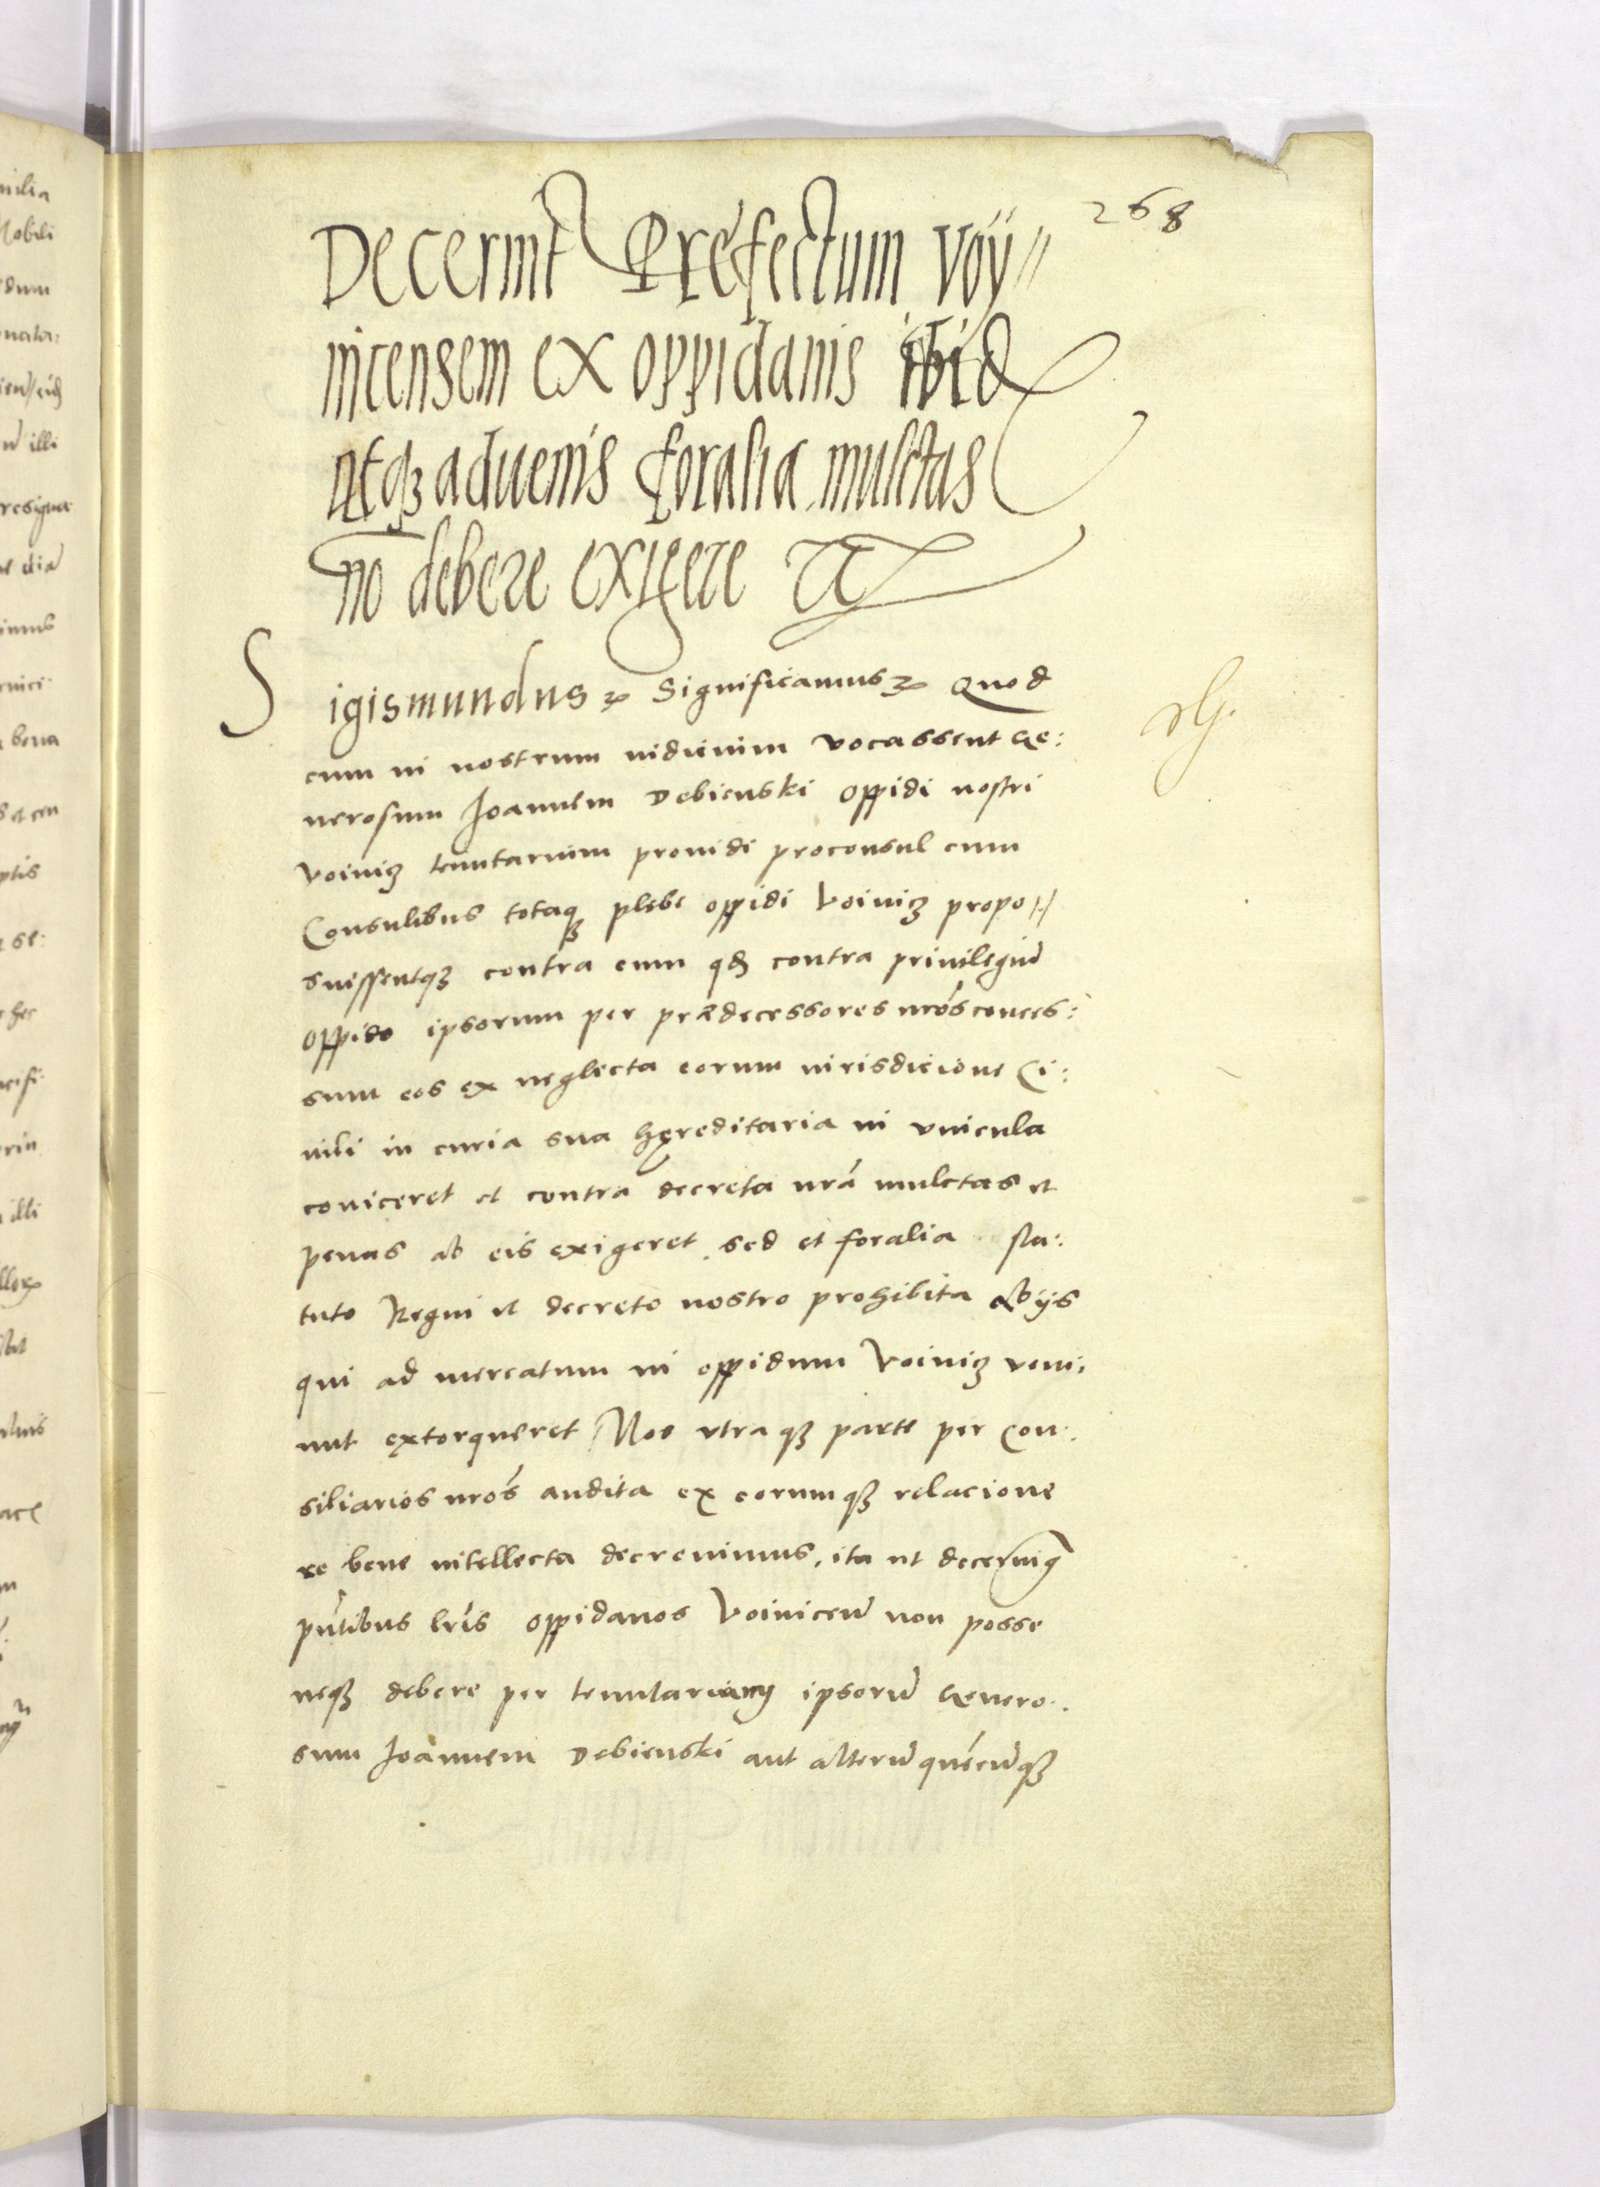 268
Decernit Prefectum Voy//
nicensem ex oppidanis ibid
Atqz aduenis foralia mulctas
no debere exigere
Sigismundus Significamus Quod
cum in nostrum iudicium vocassent Ge:
nerosum Joannem Debienski oppidi nostri
Voinicz tenutarium prouidi proconsul cum
Consulibus totaqz plebe oppidi Voinicz propo
suissentqz contra eum qd contra priuilegiu
oppido ipsorum per prædecessores nros conces:
sum eos ex neglecta eorum iurisdicione Ci:
uili in curia sua hęreditaria in vincula
coniceret et contra decreta nra mulctas et
penas ab eis exigeret sed et foralia sta:
tuto Regni et decreto nostro prohibita Abijs
qui ad mercatum in oppidum Voinicz veni:
unt extorqueret Nos vtraqz parte per Con:
siliarios nros audita ex eorumqz relacione
re bene intellecta decreuimus, ita ut decernimq
pntibus lris oppidanos Voiniceñ non posse
neqz debere per tenutarium ipsoru Genero:
sum Joannem Debienski aut alteru quécuqz